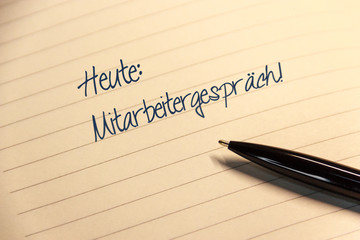 Heute:
Mitarbeitergespräch!